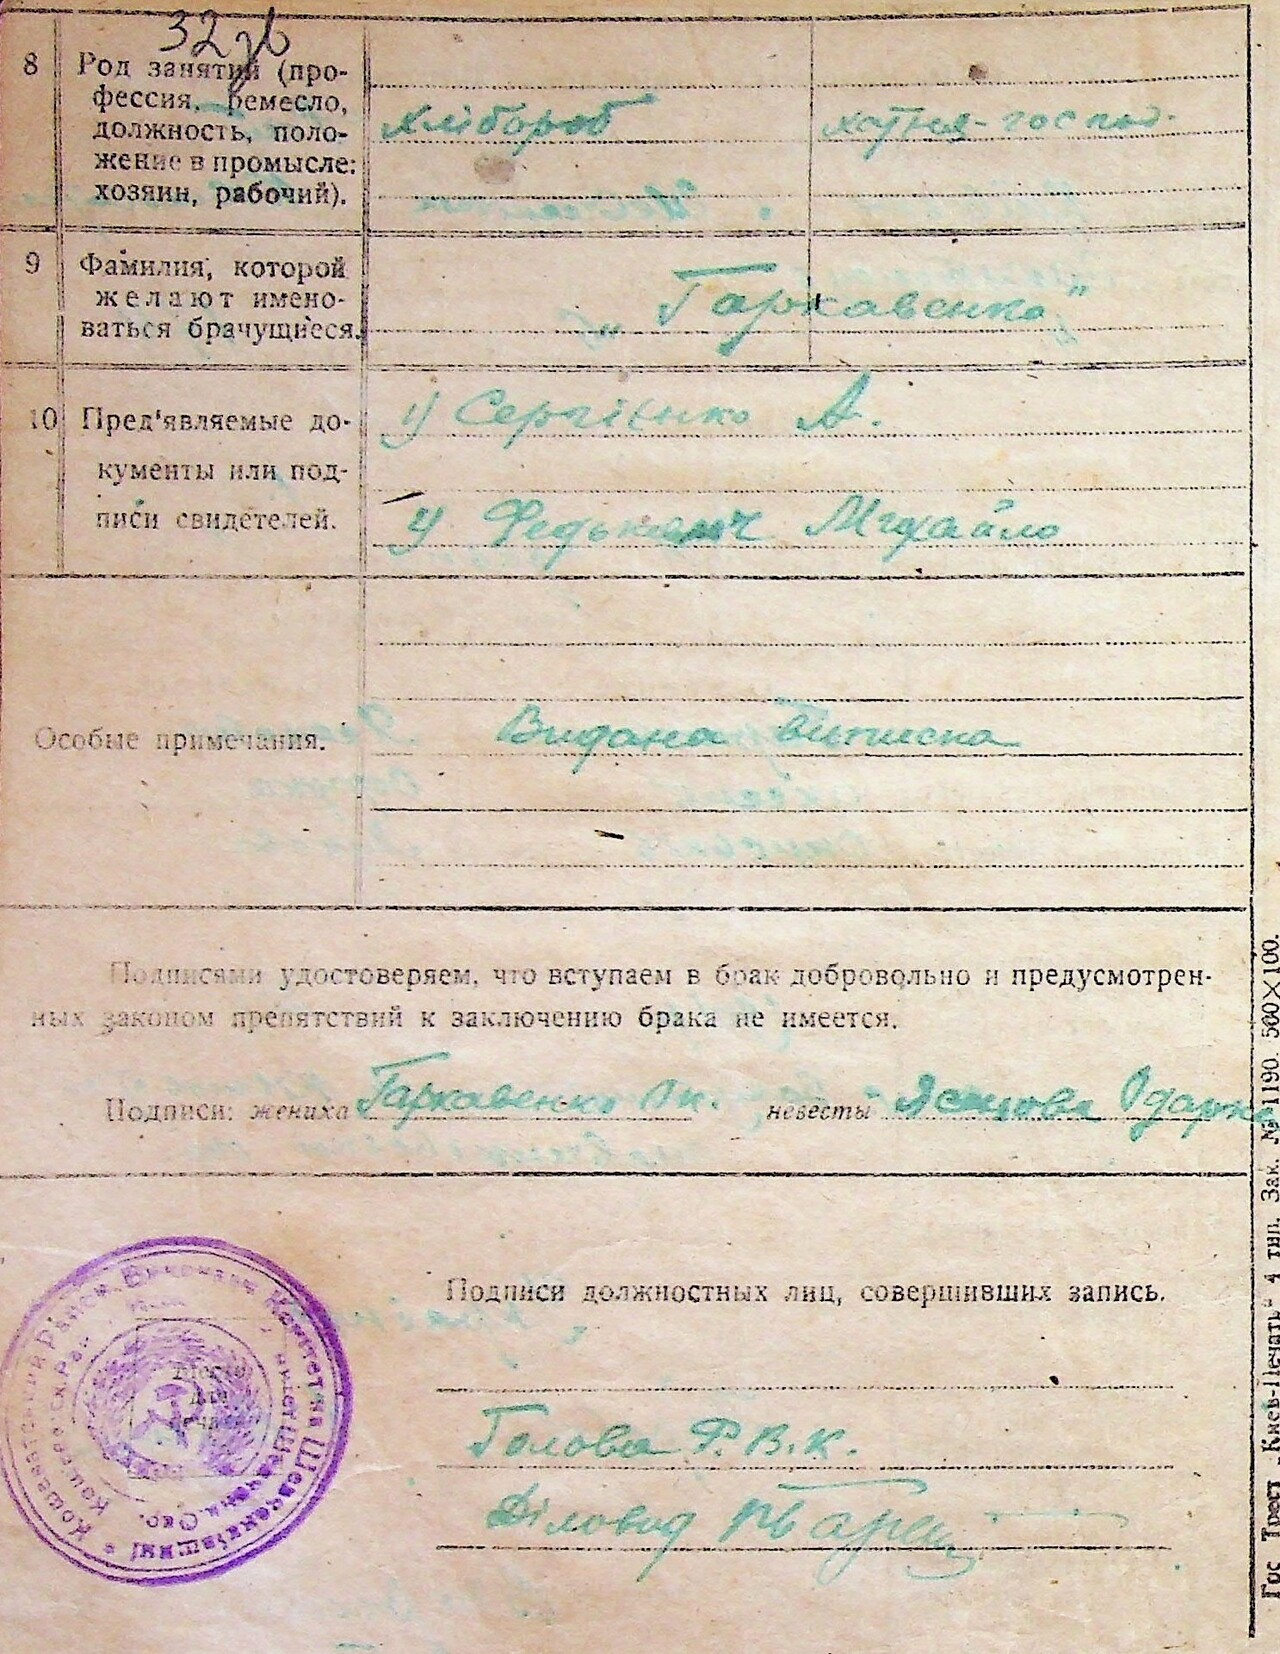 32 зв
8 Род занятий (про-
фессия, ремесло,
должность, поло-
жение в промысле:
хозяин, рабочий).
хлібороб хатня-господ.
9 Фамилия, которой
желают имено-
ваться брачущиеся.
„Гаркавенко"
10 Пред'являемые до-
кументы или под-
писи свидетелей.
1) Сергієнко А.
Михайло
Особые примечания.
Видана Виписка
Подписями удостоверяем, что вступаем в брак добровольно и предусмотрен-
ных законом препятствий к заключению брака не имеется.
Подписи: жениха Гаркавенко невесты Одарка
Подписи должностных лиц, совершивших запись.
Голова Р.В.К.
Діловод
Место
для
печати
Районн. Виконавч. Комітет на Шевченківщині
Гос. Трест „Киев-Печать" 4 тип. Зак. № 1190. 500×100.